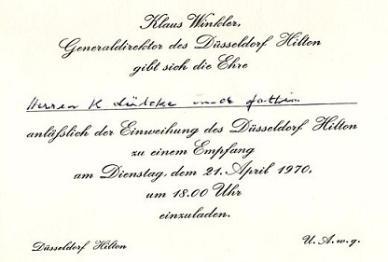 Klaus Winkler,
Generaldirektor des Düsseldorf Hilton
gibt sich die Ehre
Herren K Lüdcke und Gattin
anläßlich der Einweihung des Düsseldorf Hilton
zu einem Empfang
am Dienstag, dem 21. April 1970,
um 18.00 Uhr
einzuladen.
Düsseldorf Hilton
U. A. w. g.